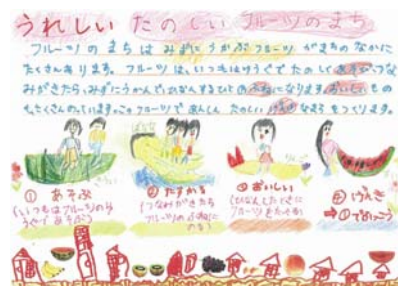 うれしい たのしい フルーツのまち
フルーツの まちは みずに うかぶ フルーツ が まちの なかに
たくさん あります。フルーツは、いつもは ゆうぐで たのしく あそび、つな
みがきたら、みずに うかんで ひなんする ひとの ふねに なります。おいしい もの
も、たくさん のっています。この フルーツで あんしん たのしい げんき なまちを つくります。
① あそぶ
(いつもはフルーツのゆ
うぐであそぶ)
② たすかる
(つなみがきたら
フルーツのふねに
のる)
③ おいしい
(ひなんしたときに
フルーツをたべる)
④ げんき
➡ ①でいこう